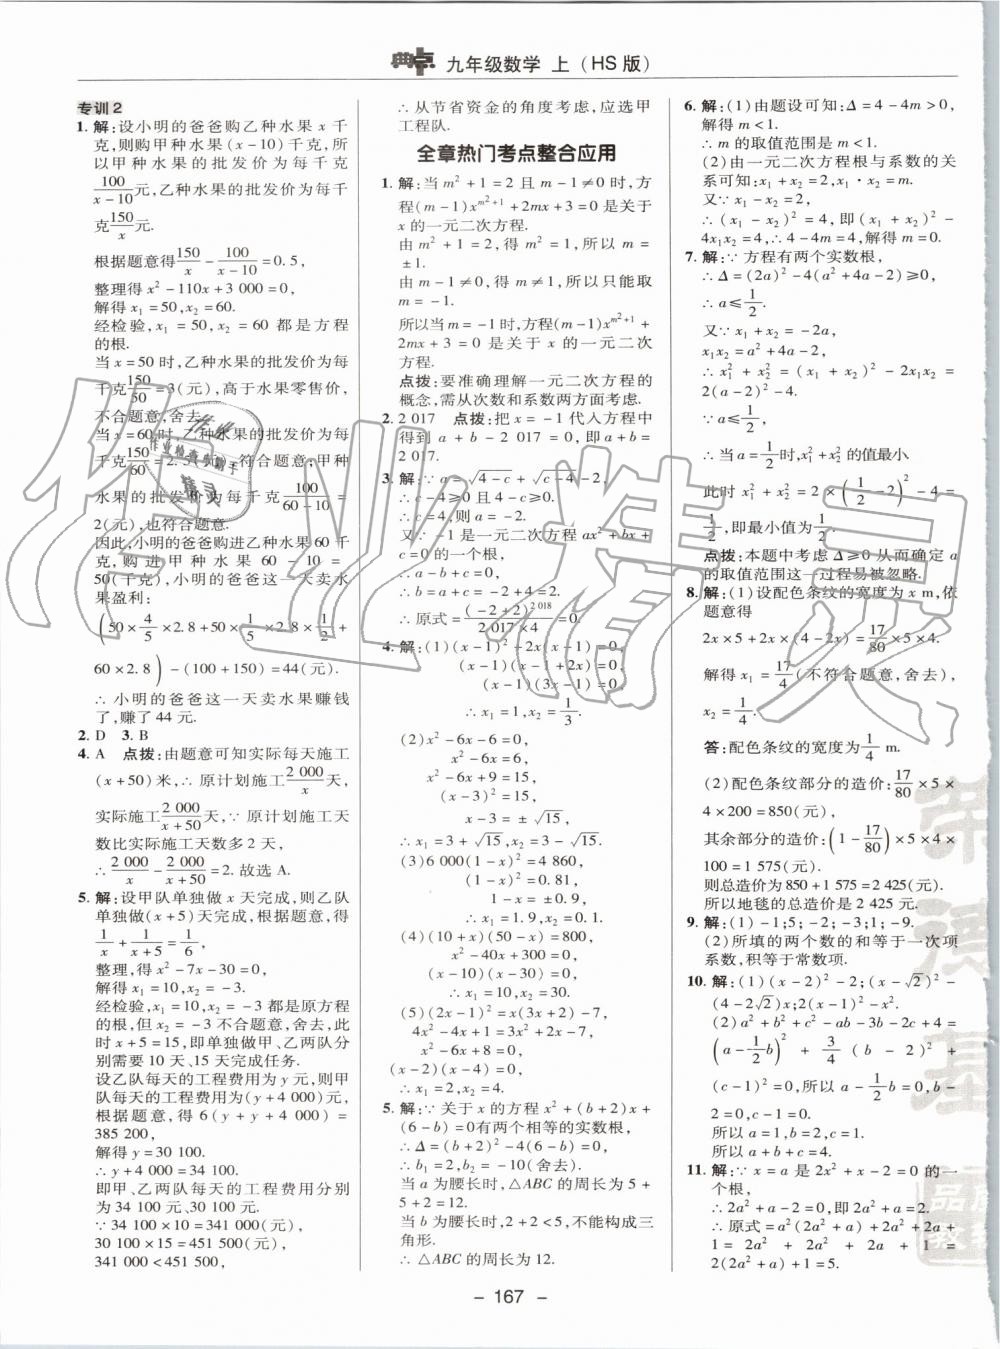 典点 九年级数学 上(HS版)
专训2
1. 解:设小明的爸爸购乙种水果 x 千
克,则购甲种水果(x-10)千克,所
以甲种水果的批发价为每千克
100/(x-10)元,乙种水果的批发价为每千
克150/x元.
根据题意得150/x-100/(x-10)=0.5,
整理得 x²-110x+3 000=0,
解得 x₁=50,x₂=60.
经检验,x₁=50,x₂=60 都是方程
的根.
当 x=50 时,乙种水果的批发价为每
千克150/50=3(元),高于水果零售价,
不合题意,舍去.
当 x=60时,乙种水果的批发价为每
千克150/60=2.5(元),符合题意,甲种
水果的批发价为每千克100/(60-10)=
2(元),也符合题意.
因此,小明的爸爸购进乙种水果 60 千
克,购进甲种水果 60-10=
50(千克),小明的爸爸这一天卖水
果盈利:
(50×4/5×2.8+50×1/5×2.8×1/2+
60×2.8)-(100+150)=44(元).
∴小明的爸爸这一天卖水果赚钱
了,赚了 44 元.
2. D 3. B
4. A 点拨:由题意可知实际每天施工
(x+50)米,∴原计划施工2 000/x天,
实际施工2 000/(x+50)天,∵原计划施工天
数比实际施工天数多 2 天,
∴2 000/x-2 000/(x+50)=2. 故选 A.
5. 解:设甲队单独做 x 天完成,则乙队
单独做(x+5)天完成,根据题意,得
1/x+1/(x+5)=1/6,
整理,得 x²-7x-30=0,
解得 x₁=10,x₂=-3.
经检验,x₁=10,x₂=-3都是原方程
的根,但 x₂=-3 不合题意,舍去,此
时 x+5=15,即单独做甲、乙两队分
别需要 10 天、15 天完成任务.
设乙队每天的工程费用为 y 元,则甲
队每天的工程费为(y+4 000)元,
根据题意,得 6(y+y+4 000)=
385 200,
解得 y=30 100.
∴y+4 000=34 100.
即甲、乙两队每天的工程费用分别
为 34 100 元、30 100 元.
∵34 100×10=341 000(元),
30 100×15=451 500(元),
341 000<451 500,
∴从节省资金的角度考虑,应选甲
工程队.
全章热门考点整合应用
1. 解:当 m²+1=2 且 m-1≠0 时,方
程(m-1)x^(m²+1)+2mx+3=0 是关于
x 的一元二次方程.
由 m²+1=2,得 m²=1,所以 m=
±1.
由 m-1≠0,得 m≠1,所以只能取
m=-1.
所以当 m=-1时,方程(m-1)x^(m²+1)+
2mx+3=0 是关于 x 的一元二次
方程.
点拨:要准确理解一元二次方程的
概念,需从次数和系数两方面考虑.
2. 2 017 点拨:把 x=-1 代入方程中
得到 a+b-2 017=0,即 a+b=
2 017.
3. 解:∵a=√(4-c)+√(c-4)-2,
∴c-4≥0 且 4-c≥0,
∴c=4,则 a=-2.
又∵-1是一元二次方程 ax²+bx+
c=0 的一个根,
∴a-b+c=0,
∴b=a+c=-2+4=2.
∴原式=(-2+2)^2 018/(2 017×4)=0.
4. 解:(1)(x-1)²-2x(x-1)=0,
(x-1)(x-1+2x)=0,
(x-1)(3x-1)=0,
∴x₁=1,x₂=1/3.
(2)x²-6x-6=0,
x²-6x=6,
x²-6x+9=15,
(x-3)²=15,
x-3=±√15,
∴x₁=3+√15,x₂=3-√15.
(3)6 000(1-x)²=4 860,
(1-x)²=0.81,
1-x=±0.9,
∴x₁=1.9,x₂=0.1.
(4)(10+x)(50-x)=800,
x²-40x+300=0,
(x-10)(x-30)=0,
∴x₁=10,x₂=30.
(5)(2x-1)²=x(3x+2)-7,
4x²-4x+1=3x²+2x-7,
x²-6x+8=0,
(x-2)(x-4)=0,
∴x₁=2,x₂=4.
5. 解:∵关于 x 的方程 x²+(b+2)x+
(6-b)=0有两个相等的实数根,
∴Δ=(b+2)²-4(6-b)=0,
∴b₁=2,b₂=-10(舍去).
当 a 为腰长时,△ABC 的周长为 5+
5+2=12.
当 b 为腰长时,2+2<5,不能构成三
角形.
∴△ABC 的周长为 12.
6. 解:(1)由题设可知:Δ=4-4m>0,
解得 m<1.
∴m 的取值范围是 m<1.
(2)由一元二次方程根与系数的关
系可知:x₁+x₂=2,x₁·x₂=m.
又∵x₁-x₂=2,
∴(x₁-x₂)²=4,即(x₁+x₂)²-
4x₁x₂=4,∴4-4m=4,解得 m=0.
7. 解:∵方程有两个实数根,
∴Δ=(2a)²-4(a²+4a-2)≥0,
∴a≤1/2.
又∵x₁+x₂=-2a,
x₁x₂=a²+4a-2,
∴x₁²+x₂²=(x₁+x₂)²-2x₁x₂=
2(a-2)²-4.
∵a≤1/2,
∴当 a=1/2时,x₁²+x₂²的值最小.
此时 x₁²+x₂²=2×(1/2-2)²-4=
1/2,即最小值为1/2.
点拨:本题中考虑 Δ≥0 从而确定 a
的取值范围这一过程易被忽略.
8. 解:(1)设配色条纹的宽度为 x m,依
题意得
2x×5+2x×(4-2x)=17/80×5×4.
解得 x₁=17/4(不符合题意,舍去),
x₂=1/4.
答:配色条纹的宽度为1/4 m.
(2)配色条纹部分的造价:17/80×5×
4×200=850(元),
其余部分的造价:(1-17/80)×5×4×
100=1 575(元),
则总造价为 850+1 575=2 425(元),
所以地毯的总造价是 2 425 元.
9. 解:(1)-1;5;-2;-3;1;-9.
(2)所填的两个数的和等于一次项
系数,积等于常数项.
10. 解:(1)(x-2)²-2;(x-√2)²-
(4-2√2)x;2(x-1)²-x².
(2)a²+b²+c²-ab-3b-2c+4=
(a-1/2b)²+3/4(b-2)²+
(c-1)²=0,所以 a-1/2b=0,b-
2=0,c-1=0.
所以 a=1,b=2,c=1.
所以 a+b+c=4.
11. 解:∵x=a 是 2x²+x-2=0 的一
个根,
∴2a²+a-2=0,即2a²+a=2.
∴原式=2a²(2a²+a)+2a²+2a+
1=2a²+2a²+2a+1=
2(2a²+a)+1=5.
作业精灵
- 167 -